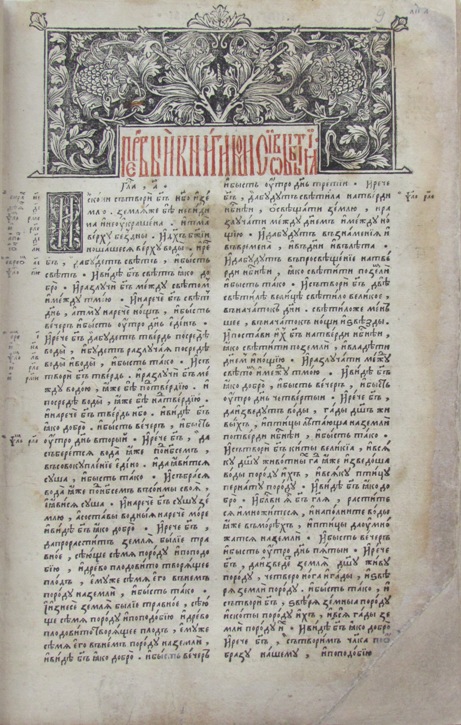 ПЕРВЫЙ КНИГИ МОИСЕѠВЫ БЫТІА
Гла҃, а҃.
Искони сътвори бг҃ъ нб҃о и зе
млю. земля же бѣ невиди
ма и неукрашена, и тма
верху бездны. и дх҃ъ бж҃іи
ношашеся верху воды. и рече
бг҃ъ, да будеть свѣтъ, и бысть
свѣтъ. и видѣ бг҃ъ свѣтъ ꙗко до
бро. и разлучи бг҃ъ между свѣтом
и между тмою. и нарече бг҃ъ свѣт
дн҃ь, а тму нарече нощь, и бысть
вечеръ и бысть оутро дн҃ь единъ.
и рече бг҃ъ, да будеть твердь посредѣ
воды, и будеть разлучая посредѣ
воды и воды, и бысть тако. и сът
вори бг҃ъ твердь. и разлучи бг҃ъ ме
жду водою, ꙗже бѣ под твердію. и
посредѣ воды, ꙗже бѣ над твердію.
и нарече бг҃ъ твердь нб҃о, и видѣ бг҃ъ
ꙗко добро. и бысть вечеръ, и бысть
оутро дн҃ь вторыи. и рече бг҃ъ, да
съберется вода ꙗже под нб҃семъ,
въ совокупленіе едино. и да ꙗвится
суша, и бысть тако. и собрася
вода ꙗже под нб҃семъ въ сонмы своя,
и ꙗвися суша. и нарече бг҃ъ сушу зе
млю, а съставы водныя нарече море
и видѣ бг҃ъ ꙗко добро. и рече бг҃ъ,
да прорастить земля быліе тра
вное, сѣюще сѣмя по роду и по подо
бію, и древо плодовито творящее
плодъ, ему же сѣмя его в немъ
по роду на земли, и бысть тако.
и изнесе земля быліе травное, сѣю
ще сѣмя по роду и по подобію и древо
плодовито творящее плодъ, ему же
сѣмя его в немъ по роду на земли,
и видѣ бг҃ъ ꙗко добро. и бысть вечеръ
и бысть оутро дн҃ь третіи. и рече
бг҃ъ, да будуть свѣтила на тверди
нб҃снѣи, освѣщати землю, и ра
злучати между днем и между но
щію. и да будуть въ знаменія и
въ времена, и въ дни и въ лѣта.
и да будуть въ просвѣщеніе на твер
ди нб҃снѣи, ꙗко свѣтити по земли
и бысть тако. и сътвори бг҃ъ двѣ
свѣтилѣ велицѣ свѣтило великое,
в началок дни. и свѣтило же мен
шее, в началок нощи и звѣзды.
и постави их бг҃ъ на тверди нб҃снѣи,
ꙗко свѣтити по земли, и владѣти
днем и нощію. и разлучати между
свѣтом и между тмою. и видѣ бг҃ъ
ꙗко добро, и бысть вечеръ, и бысть
оутро дн҃ь четвертыи. и рече бг҃ъ,
да изведуть воды, гады дш҃ь жи
выхъ, и птицы лѣтающа на земли
по тверди нб҃снѣи, и бысть тако.
и сътвори бг҃ъ киты великія, и вся
ку дш҃у животныхъ гад ꙗже изведоша
воды по роду ихъ, и всяку птицу
пернату по роду. и видѣ бг҃ъ ꙗко до
бро. и блг҃ви я бг҃ъ гл҃я, растите
ся и множитеся, и наполните воды
ꙗже в моряхъ, и птицы да оумно
жатся на земли. и бысть вечеръ
и бысть оутро дн҃ь пятыи. и рече
бг҃ъ, да изведе земля дш҃у живу
по роду, четвероногая и гады, и звѣ
ря земли по роду. и бысть тако, и
сътвори бг҃ъ, звѣря земныя по роду
и скоты по роду ихъ, и вся гады зе
мли по роду и. и видѣ бг҃ъ ꙗко добро
и рече бг҃ъ, сътворим чл҃ка по о
бразу нашему, и по подобію